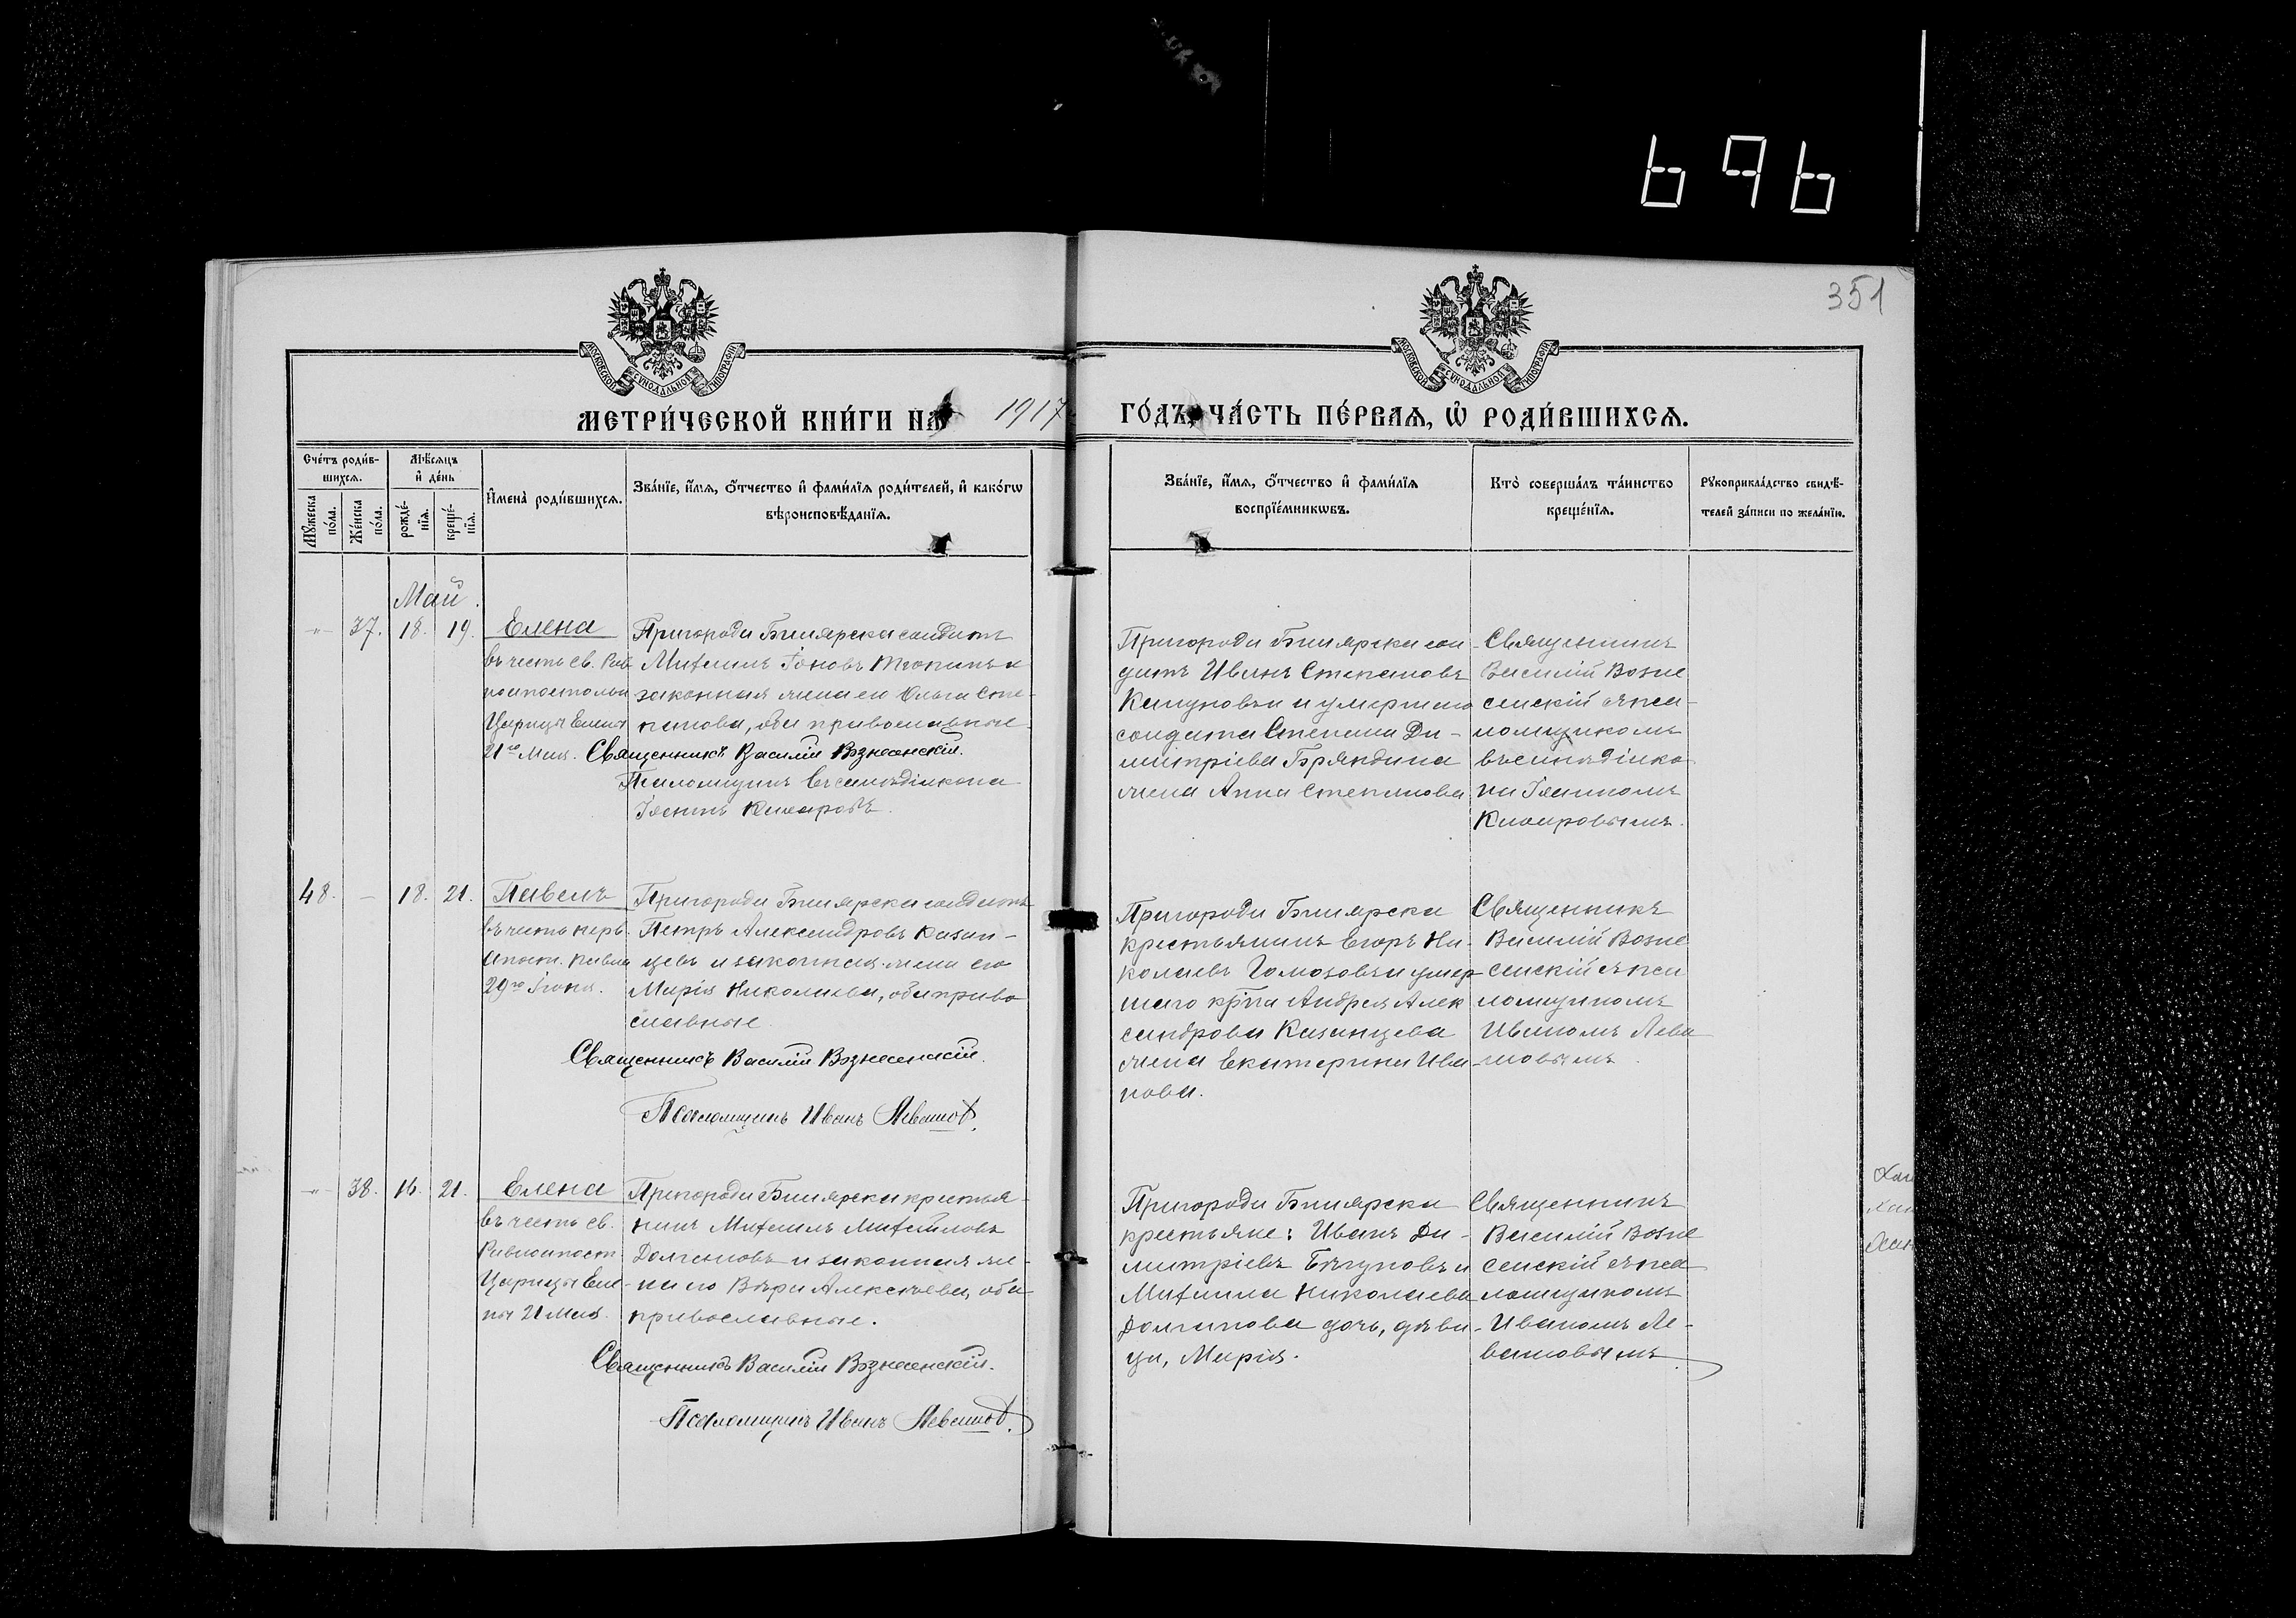 696
351
МОСКОВСКОЙ СѴНОДАЛЬНОЙ ТИПОГРАФІИ
МОСКОВСКОЙ СѴНОДАЛЬНОЙ ТИПОГРАФІИ
МЕТРИ́ЧЕСКОЙ КНИ́ГИ НА 1917 ГО́ДЪ, ЧА́СТЬ ПЕ́РВАЯ, Ѡ РОДИ́ВШИХСЯ.
Сче́тъ роди́в-
шихся.
Мѣ́сяцъ
и де́нь
Му́жеска по́ла.
Же́нска по́ла.
рожде́-
нїя.
креще́-
нїя.
Имена̀ роди́вшихся.
Зва́нїе, и́мя, о́тчество и фами́лїя роди́телей, и како́гѡ
вѣроисповѣ́данїя.
Зва́нїе, и́мя, о́тчество и фами́лїя
воспрїе́мникѡвъ.
Кто̀ соверша́лъ та́инство
креще́нїя.
Рукоприкла́дство свидѣ́-
телей за́писи по жела́нїю.
Май.
-"- 37. 18. 19.
Елена
въ честь св. Рав
ноапостольн
Царицы Елены
21го Мая.
Пригорода Билярска солдатъ
Михаилъ Іоновъ и
законная жена его Ольга Сте-
панова, оба православные.
Священникъ Василій Вознесенскій.
Псаломщикъ въ санѣ діакона
Пригорода Билярска сол-
датъ Иванъ Степановъ
и умершаго
солдата Степана Ди-
митріева
жена Анна Степанова
Священникъ
Василій Возне
сенскій съ пса-
ломщикомъ
въ санѣ діако
на
48. - 18. 21.
Павелъ
въ честь перв.
Апост. Павла
29го Іюня.
Пригорода Билярска солдатъ
Петръ Александровъ Казан-
цевъ и законная жена его
Марія Николаева, оба право
славные.
Священникъ Василій Вознесенскій.
Псаломщикъ Иванъ Левашов.
Пригорода Билярска
крестьянинъ Егоръ Ни-
колаевъ Гомозовъ и умер
шаго кр-на Андрея Алек
сандрова Казанцева
жена Екатерина Ива
нова.
Священникъ
Василій Возне
сенскій съ пса
ломщикомъ
Иваномъ Лева
шовымъ.
-"- 38. 16. 21.
Елена
въ честь св.
Равноапост.
Царицы Еле-
ны 21 Мая.
Пригорода Билярска крестья-
нинъ Михаилъ Михайловъ
Долгановъ и законная же-
на его Вѣра Алексѣева, оба
православные.
Священникъ Василій Вознесенскій.
Псаломщикъ Иванъ Левашов.
Пригорода Билярска
крестьяне: Иванъ Ди-
митріевъ Бѣгуновъ и
Михаила Николаева
Долганова дочь, дѣви-
ца, Марія.
Священникъ
Василій Возне
сенскій съ пса
ломщикомъ
Иваномъ Ле-
вашовымъ.